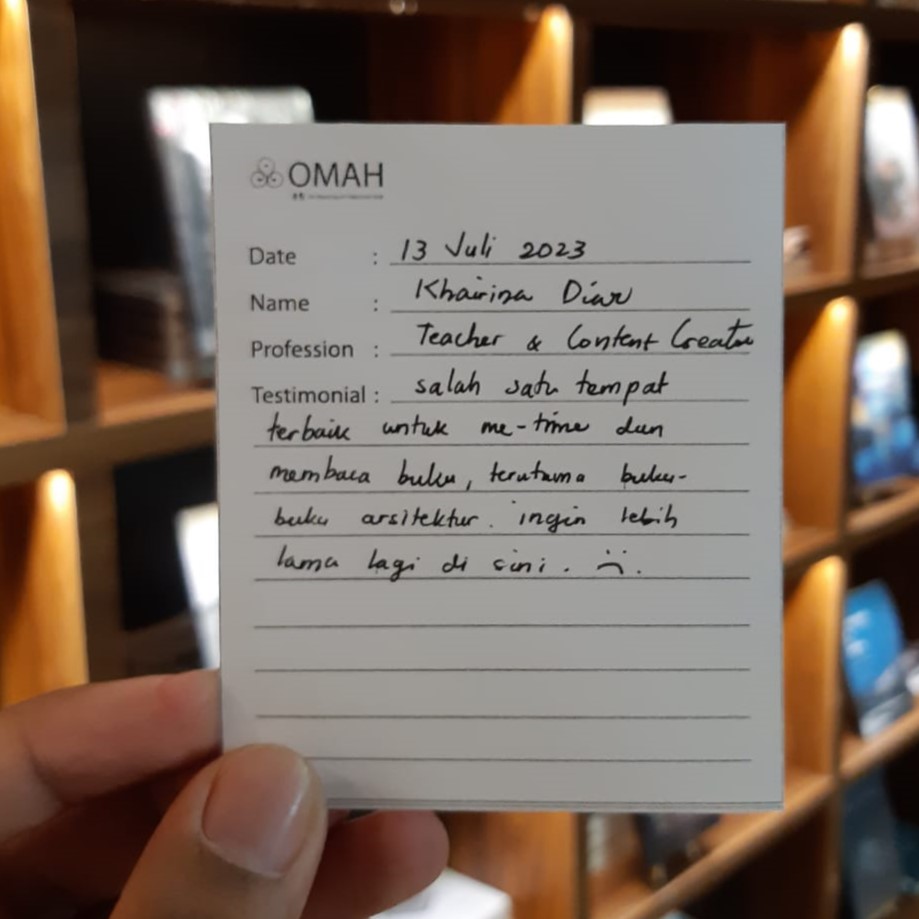 OMAH
Date : 13 Juli 2023
Name : Khairina Dian
Profession : Teacher & Content Creator
Testimonial : salah satu tempat
terbaik untuk me-time dan
membaca buku, terutama buku-
buku arsitektur. ingin lebih
lama lagi di sini. :(.